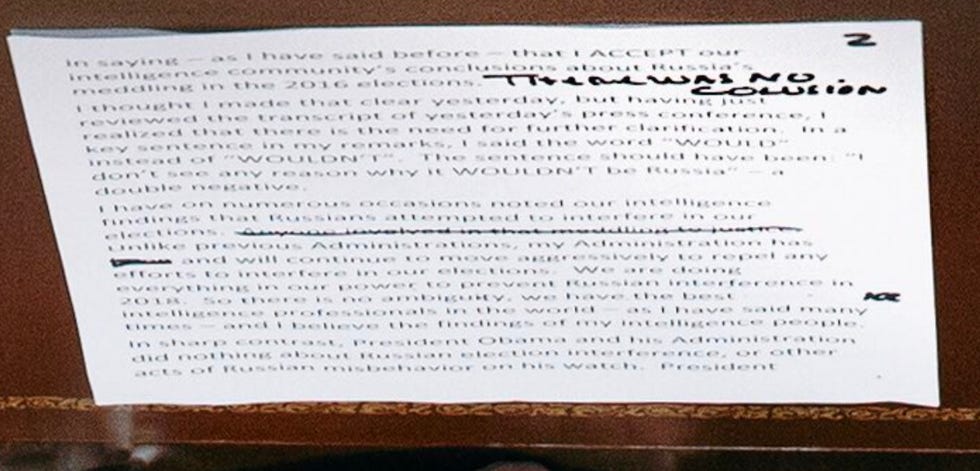 2
in saying – as I have said before – that I ACCEPT our
intelligence community's conclusions about Russia's
meddling in the 2016 elections. THERE WAS NO
COLUSION
I thought I made that clear yesterday, but having just
reviewed the transcript of yesterday's press conference, I
realized that there is the need for further clarification. In a
key sentence in my remarks, I said the word "WOULD"
instead of "WOULDN'T". The sentence should have been: "I
don't see any reason why it WOULDN'T be Russia" – a
double negative.
I have on numerous occasions noted our intelligence
findings that Russians attempted to interfere in our
elections. Anyone involved in that meddling to justice.
Unlike previous Administrations, my Administration has
and will continue to move aggressively to repel any
efforts to interfere in our elections. We are doing
everything in our power to prevent Russian interference in
2018. So there is no ambiguity, we have the best
intelligence professionals in the world – as I have said many
times – and I believe the findings of my intelligence people.
In sharp contrast, President Obama and his Administration
did nothing about Russian election interference, or other
acts of Russian misbehavior on his watch. President